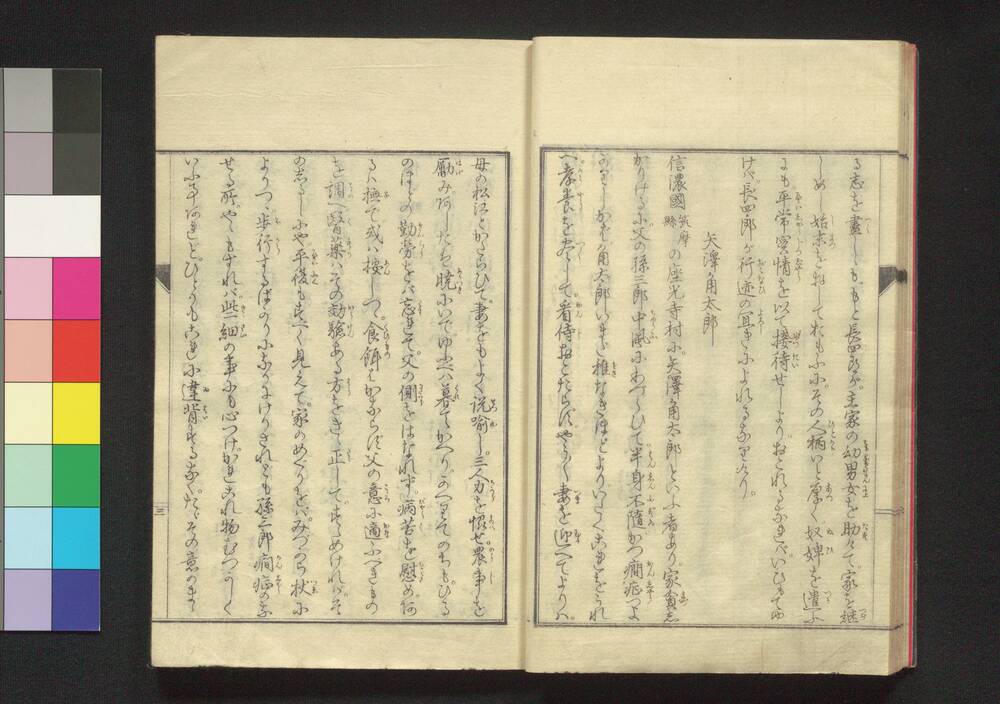 る志を盡しゝも。もと長四郎が。主家の幼男女を助けて。家を継
しめし始末をおしておもふに。その人柄いと厚く。奴婢を遣ふ
にも。平常實情を以て接待せしより。おこれるなれバ。いひもてゆ
けバ。長四郎が行迹の宜きによれるなりけり。
矢澤角太郎
信濃國筑摩縣の座光寺村に。矢澤角太郎といふ者あり。家貧し
かりけるに。父の孫三郎。中風にわづらひて。半身不随。かつ癇症つよ
かりしかど。角太郎いまだ稚なきほどより。いたくこれをいたハれ
バ。孝養を尽して看侍おこたらず。やゝく妻を迎へてよりハ。
母の松江とかたらひて。妻をもよく説喩し。三人力を憽せ。農事を
勵みあした暁にいでゆふべ暮てかへり。かへりそのちも。ひる
のほどの勤勞をバ忘れて。父の側をはなれず。病苦を慰めあ
るハ撫で或ハ按しつゝ。食餌もかならず父の意に適ふべきもの
を調へ。醫薬ハその効驗ある方をきゝ正して。すゝめけれバ。そ
のしるしにや。平復も近く見えて。家のめぐりをバ。みづから杖に
よりつゝ歩行するばかりになりにけり。されども孫三郎癇症のな
せる所や。やゝもすれバ些細の事にも心つけがれこれ物むつかしく
いふ事あれど。ひとりもこれに違背する事なく。たゞその意のまゝ
三